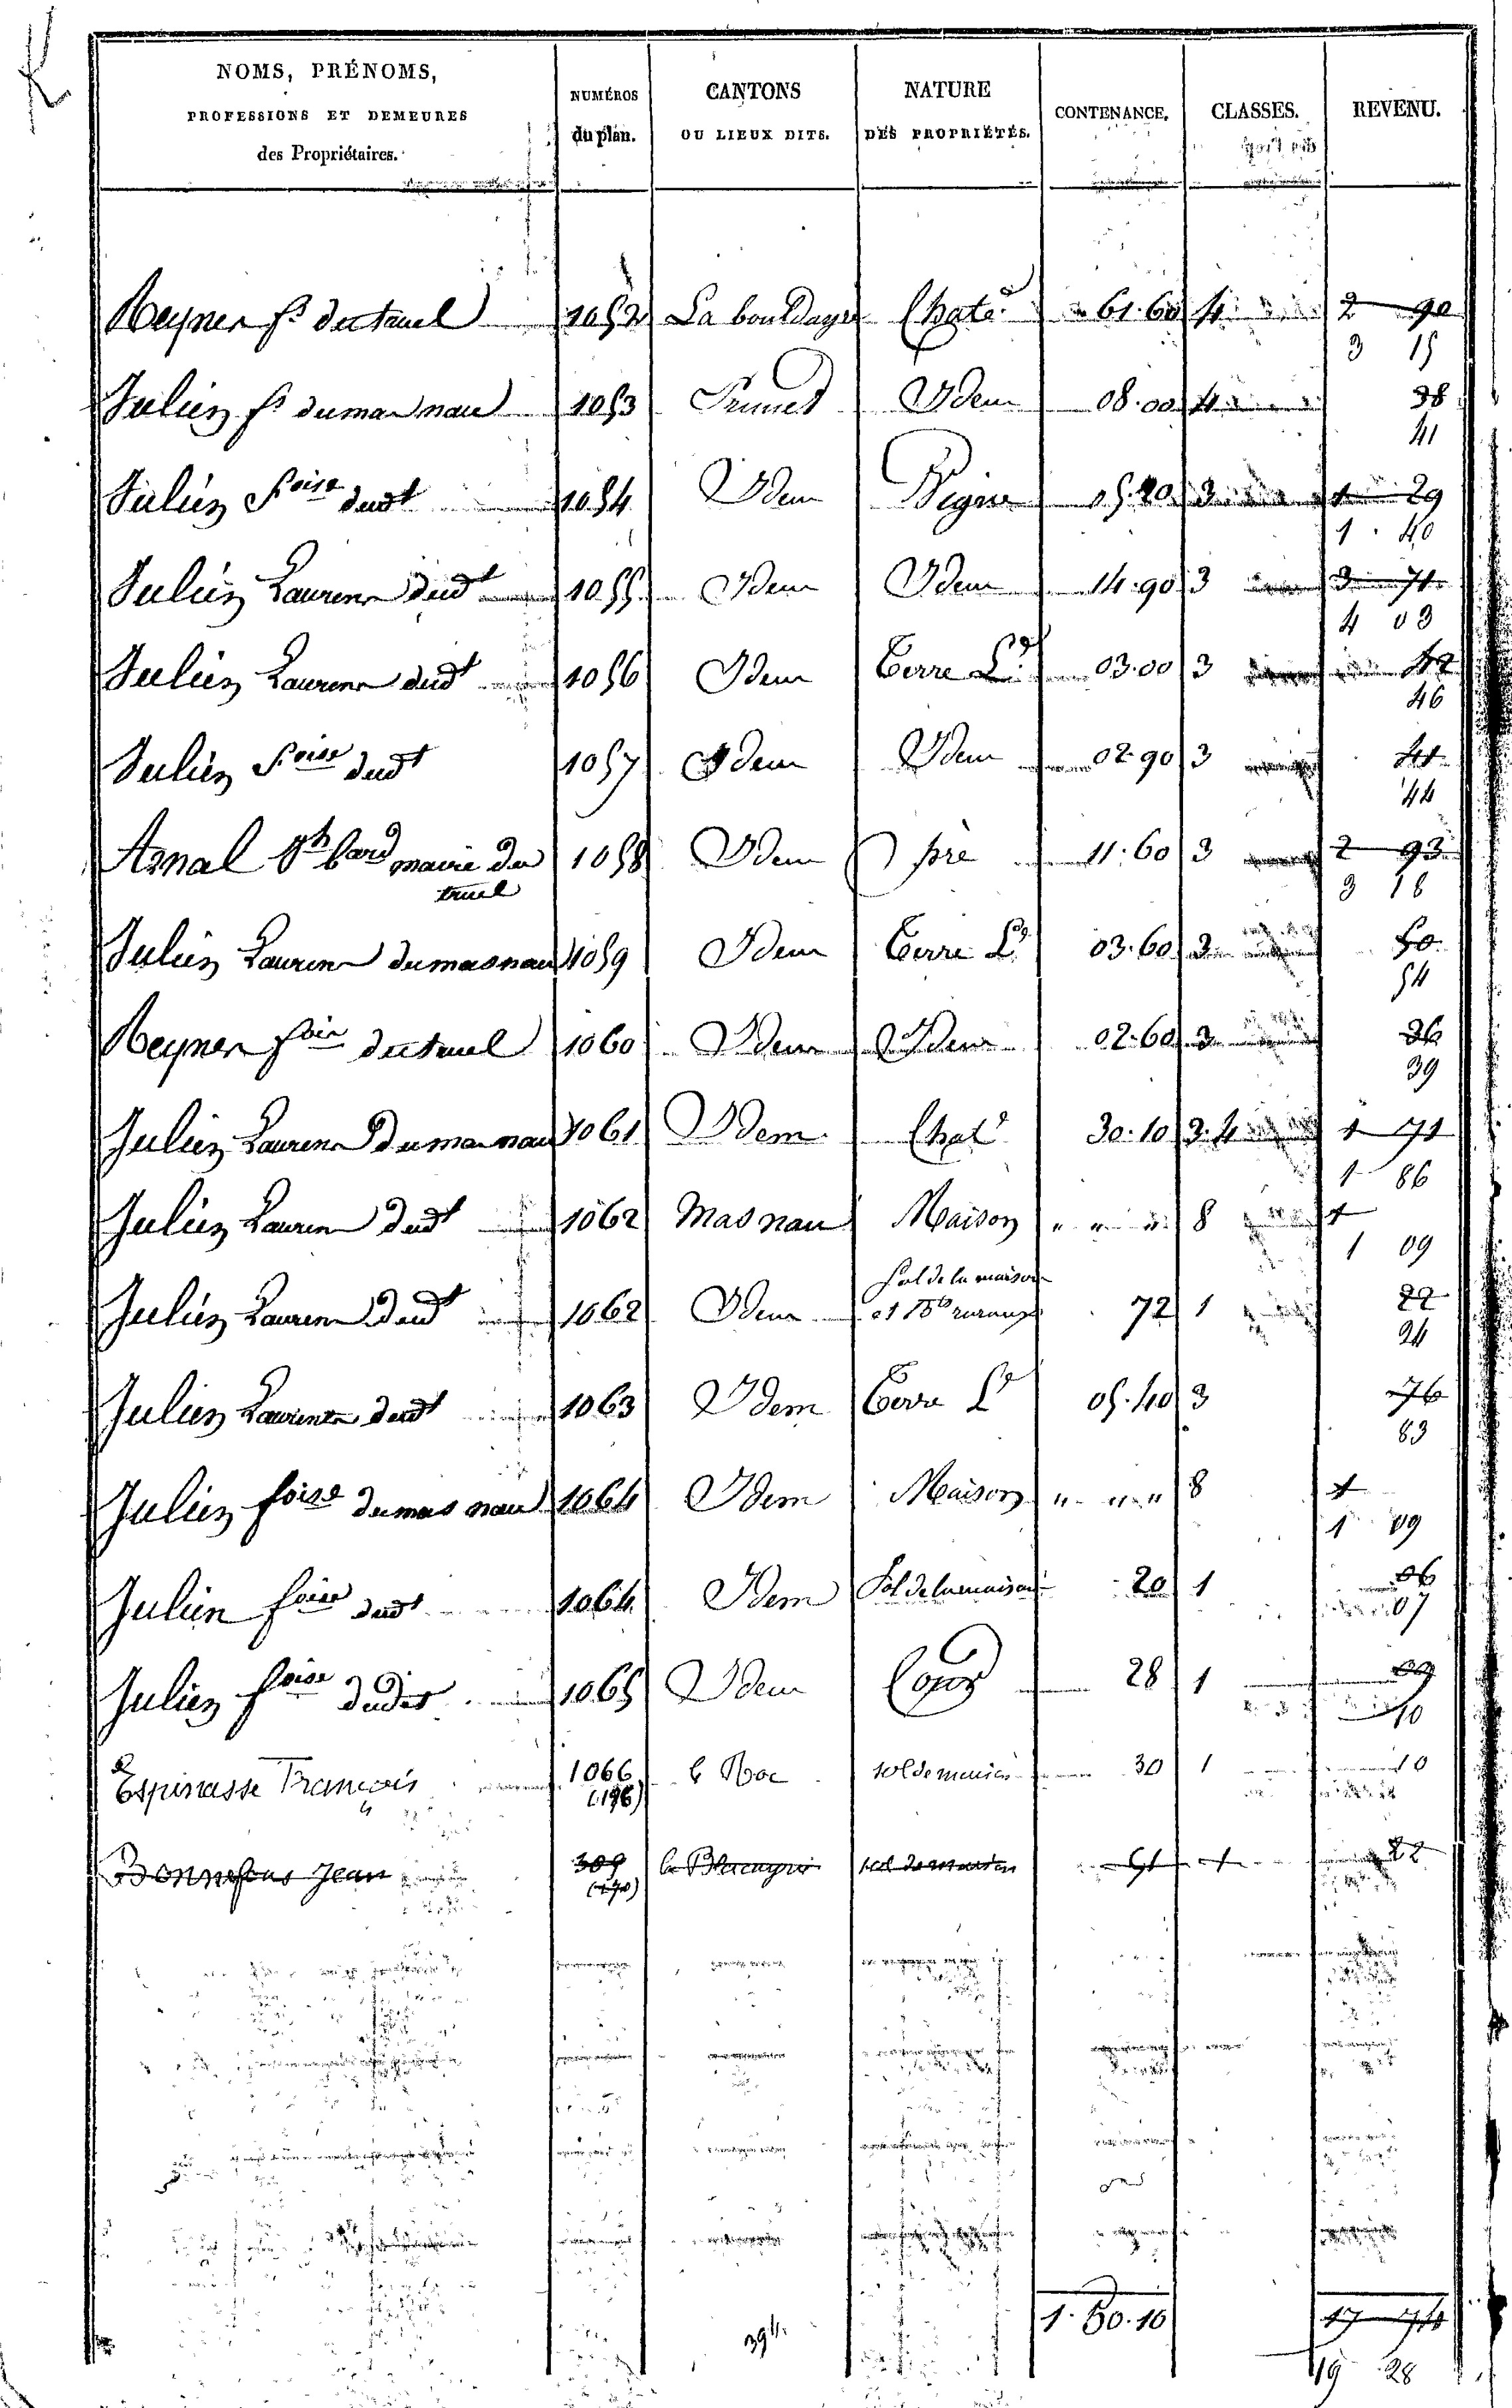 NOMS, PRÉNOMS,
PROFESSIONS ET DEMEURES
des Propriétaires.
NUMÉROS
du plan.
CANTONS
OU LIEUX DITS.
NATURE
DES PROPRIÉTÉS.
CONTENANCE.
CLASSES.
REVENU.
Meyner fs du truel 1052 La bouldayre Chatd 61.60 4 2 90
3 15
Julien fs du mas nau 1053 Prunet Idem 08.00 4 38
41
Julien foise dudt 1054 Idem Vigne 3 1 29
1 40
Julien Lauren dudt 1055 Idem Idem 14.90 3 3 71
4 03
Julien Lauren dudt 1056 Idem Terre Ld 03.00 3 42
46
Julien foise dudt 1057 Idem Idem 02.90 3 41
44
Arnal maire du 1058 Idem pré 11.60 3 2 93
truel 3 18
Julien Lauren du mas nau 1059 Idem Terre Ld 03.60 3 50
54
Meyner foise du truel 1060 Idem Idem 02.60 3 36
39
Julien Lauren du mas nau 1061 Idem Chatd 30.10 3.4 1 71
1 86
Julien Lauren dudt 1062 Mas nau Maison " " " 8 1
1 09
Sol de la maison
Julien Lauren dudt 1062 Idem et 72 1 22
24
Julien Lauren dudt 1063 Idem Terre Ld 05.40 3 76
83
Julien foise du mas nau 1064 Idem Maison " " " 8 1
1 09
Julien foise dudt 1064 Idem Sol de la maison 20 1 06
07
Julien foise dudit 1065 Idem 28 1 09
10
Espinasse François 1066 le Roc sol de maison 30 1 10
(196)
Bonnefous Jean 309 sol de maison 1 22
(170)
394
1.80.10 17 74
19 28